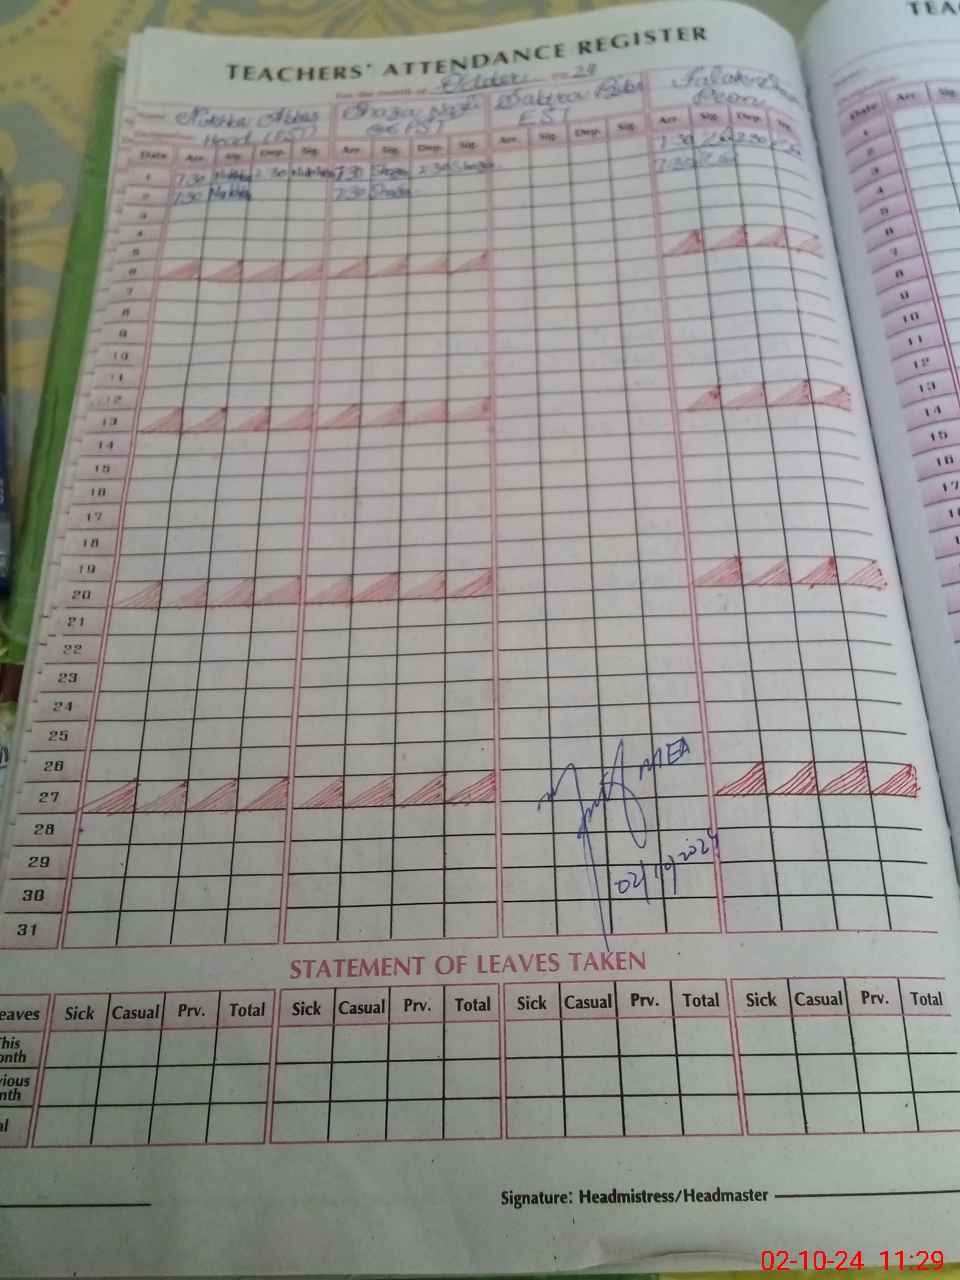 TEACHERS' ATTENDANCE REGISTER
TEA
For the month of October 24
Abbas Shazia Naz Bibi
Head (PST) PST EST Peon
Date Arr. Sig. Dep. Sig. Arr. Sig. Dep. Sig. Arr. Sig. Dep. Sig. Arr. Sig. Dep. Sig.
Date Arr. Sig.
1 7:30 2:30 7:30 Shazia 2:30 Shazia 7:30 2:30
2 7:30 7:30 Shazia 7:30
3
4
5
6
7
8
9
10
11
12
13
14
15
16
17
18
19
20
21
22
23
24
25
26
27
28
29
30
31
1
2
3
4
5
6
7
8
9
10
11
12
13
14
15
16
17
MEA
02/10/2024
STATEMENT OF LEAVES TAKEN
eaves Sick Casual Prv. Total Sick Casual Prv. Total Sick Casual Prv. Total Sick Casual Prv. Total
This
onth
vious
nth
al
Signature: Headmistress/Headmaster
02-10-24 11:29